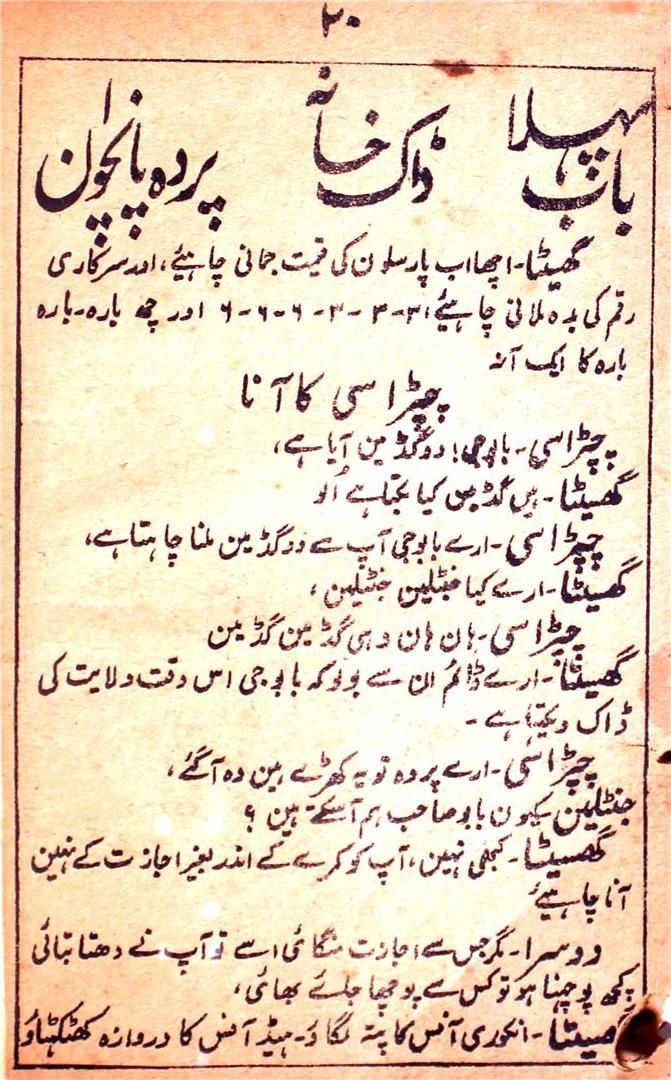 ۲۰
پہلا باب ڈاک خانہ پردہ پانچوان
گھسیٹا۔ اچھا اب پارسلون کی قیمت جمانی چاہیئے، اور سرکاری
رقم کی بدہ ملانی چاہیئے، ۳-۳-۳-۶-۶-۶ اور چھ بارہ۔ بارہ
بارہ کا ایک آنہ
چپڑاسی کا آنا
چپڑاسی۔ بابوجی! دوگڈمین آیا ہے،
گھسیٹا۔ ہیں گڈمین کیا بکتا ہے اُلو
چپڑاسی۔ ارے بابوجی آپ سے دوگڈمین ملنا چاہتا ہے،
گھسیٹا۔ ارے کیا جنٹلین جنٹلین،
چپڑاسی۔ ہان ہان وہی گڈمین گڈمین
گھسیٹا۔ ارے ڈائم ان سے بولو کہ بابوجی اس وقت ولایت کی
ڈاک دیکھتا ہے۔
چپڑاسی۔ ارے پر وہ تو یہ کھڑے ہین وہ آگئے،
جنٹلین۔ کیون بابو صاحب ہم آسکتے ہین ؟
گھسیٹا۔ کبھی نہین، آپ کو کمرے کے اندر بغیر اجازت کے نہین
آنا چاہیئے
دوسرا۔ مگر جس سے اجازت منگائی اسے تو آپ نے دھتا بتائی
کچھ پوچنا ہو تو کس سے پوچھا جائے بھائی،
گھسیٹا۔ انکوری آفس کا پتہ لگاؤ۔ ہیڈ آفس کا دروازہ کھٹکھٹاؤ